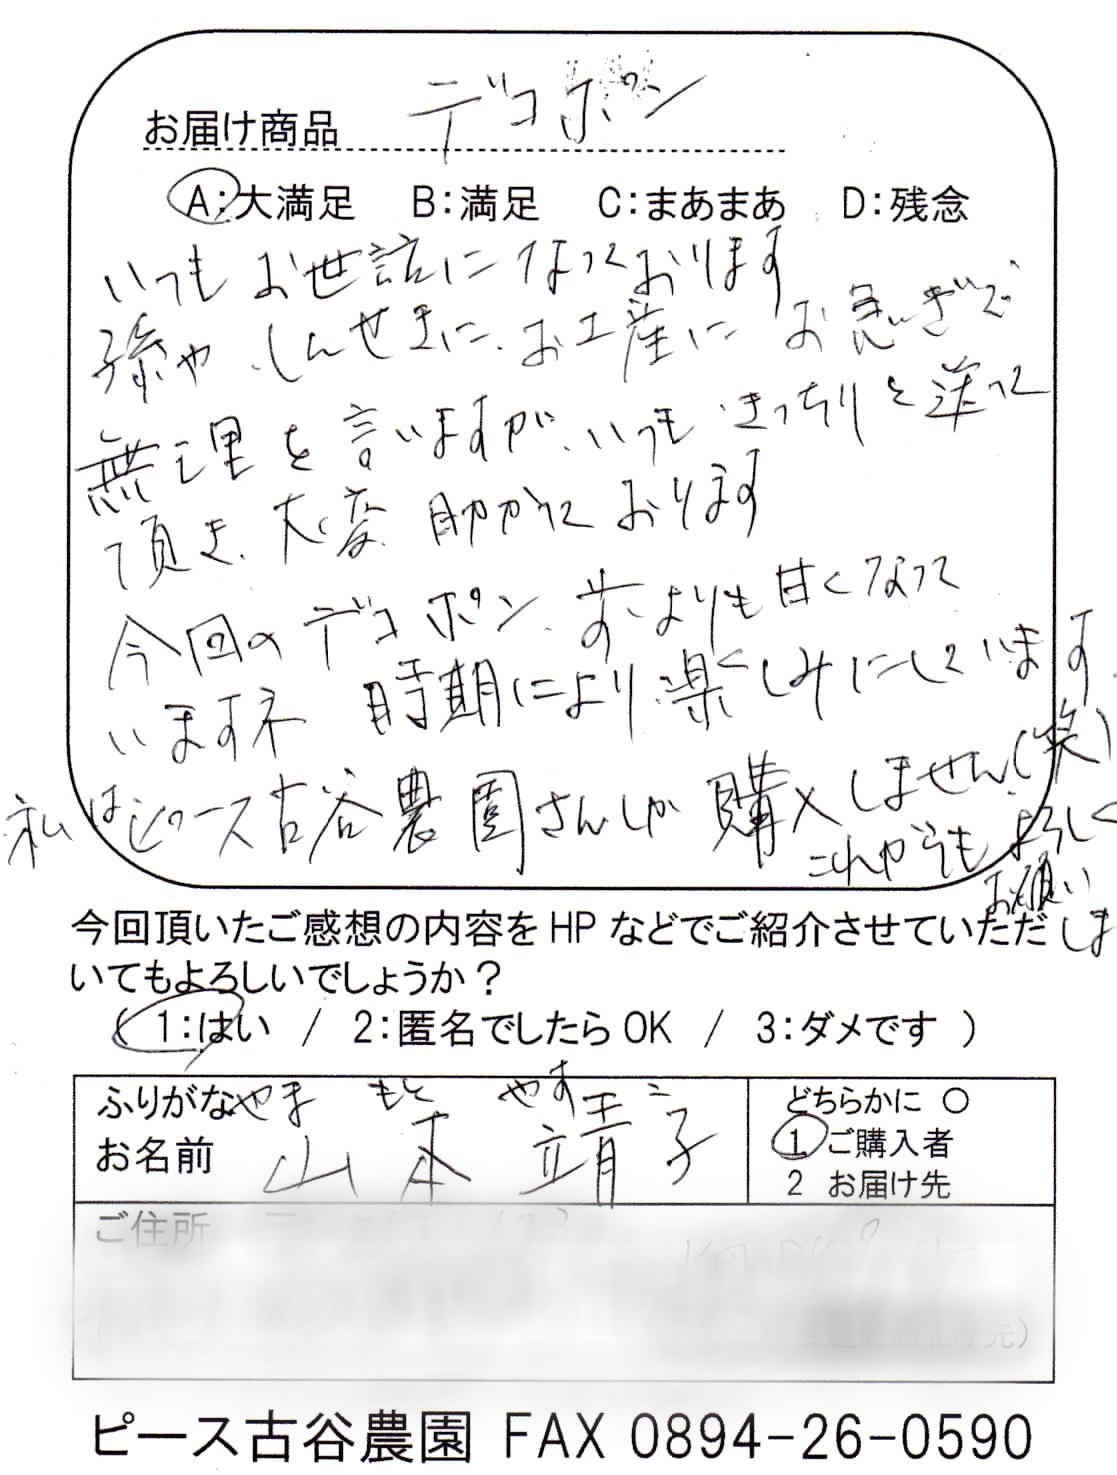 お届け商品 デコポン
A:大満足 B:満足 C:まあまあ D:残念
いつもお世話になっております
孫や、しんせきに、お土産に お急ぎで
無理を言いますが、いつも きっちりと送って
頂き、大変 助かっております
今回の デコポン、前よりも甘くなって
いますネ 時期により楽しみにしています
私はピース古谷農園さんしか 購入しません(笑)
これからも よろしく
お願い
しま
今回頂いたご感想の内容をHPなどでご紹介させていただ
いてもよろしいでしょうか?
( 1:はい / 2:匿名でしたらOK / 3:ダメです )
ふりがな やま もと やす こ
お名前 山本 靖子
どちらかに ○
1 ご購入者
2 お届け先
ご住所
ピース古谷農園 FAX 0894-26-0590